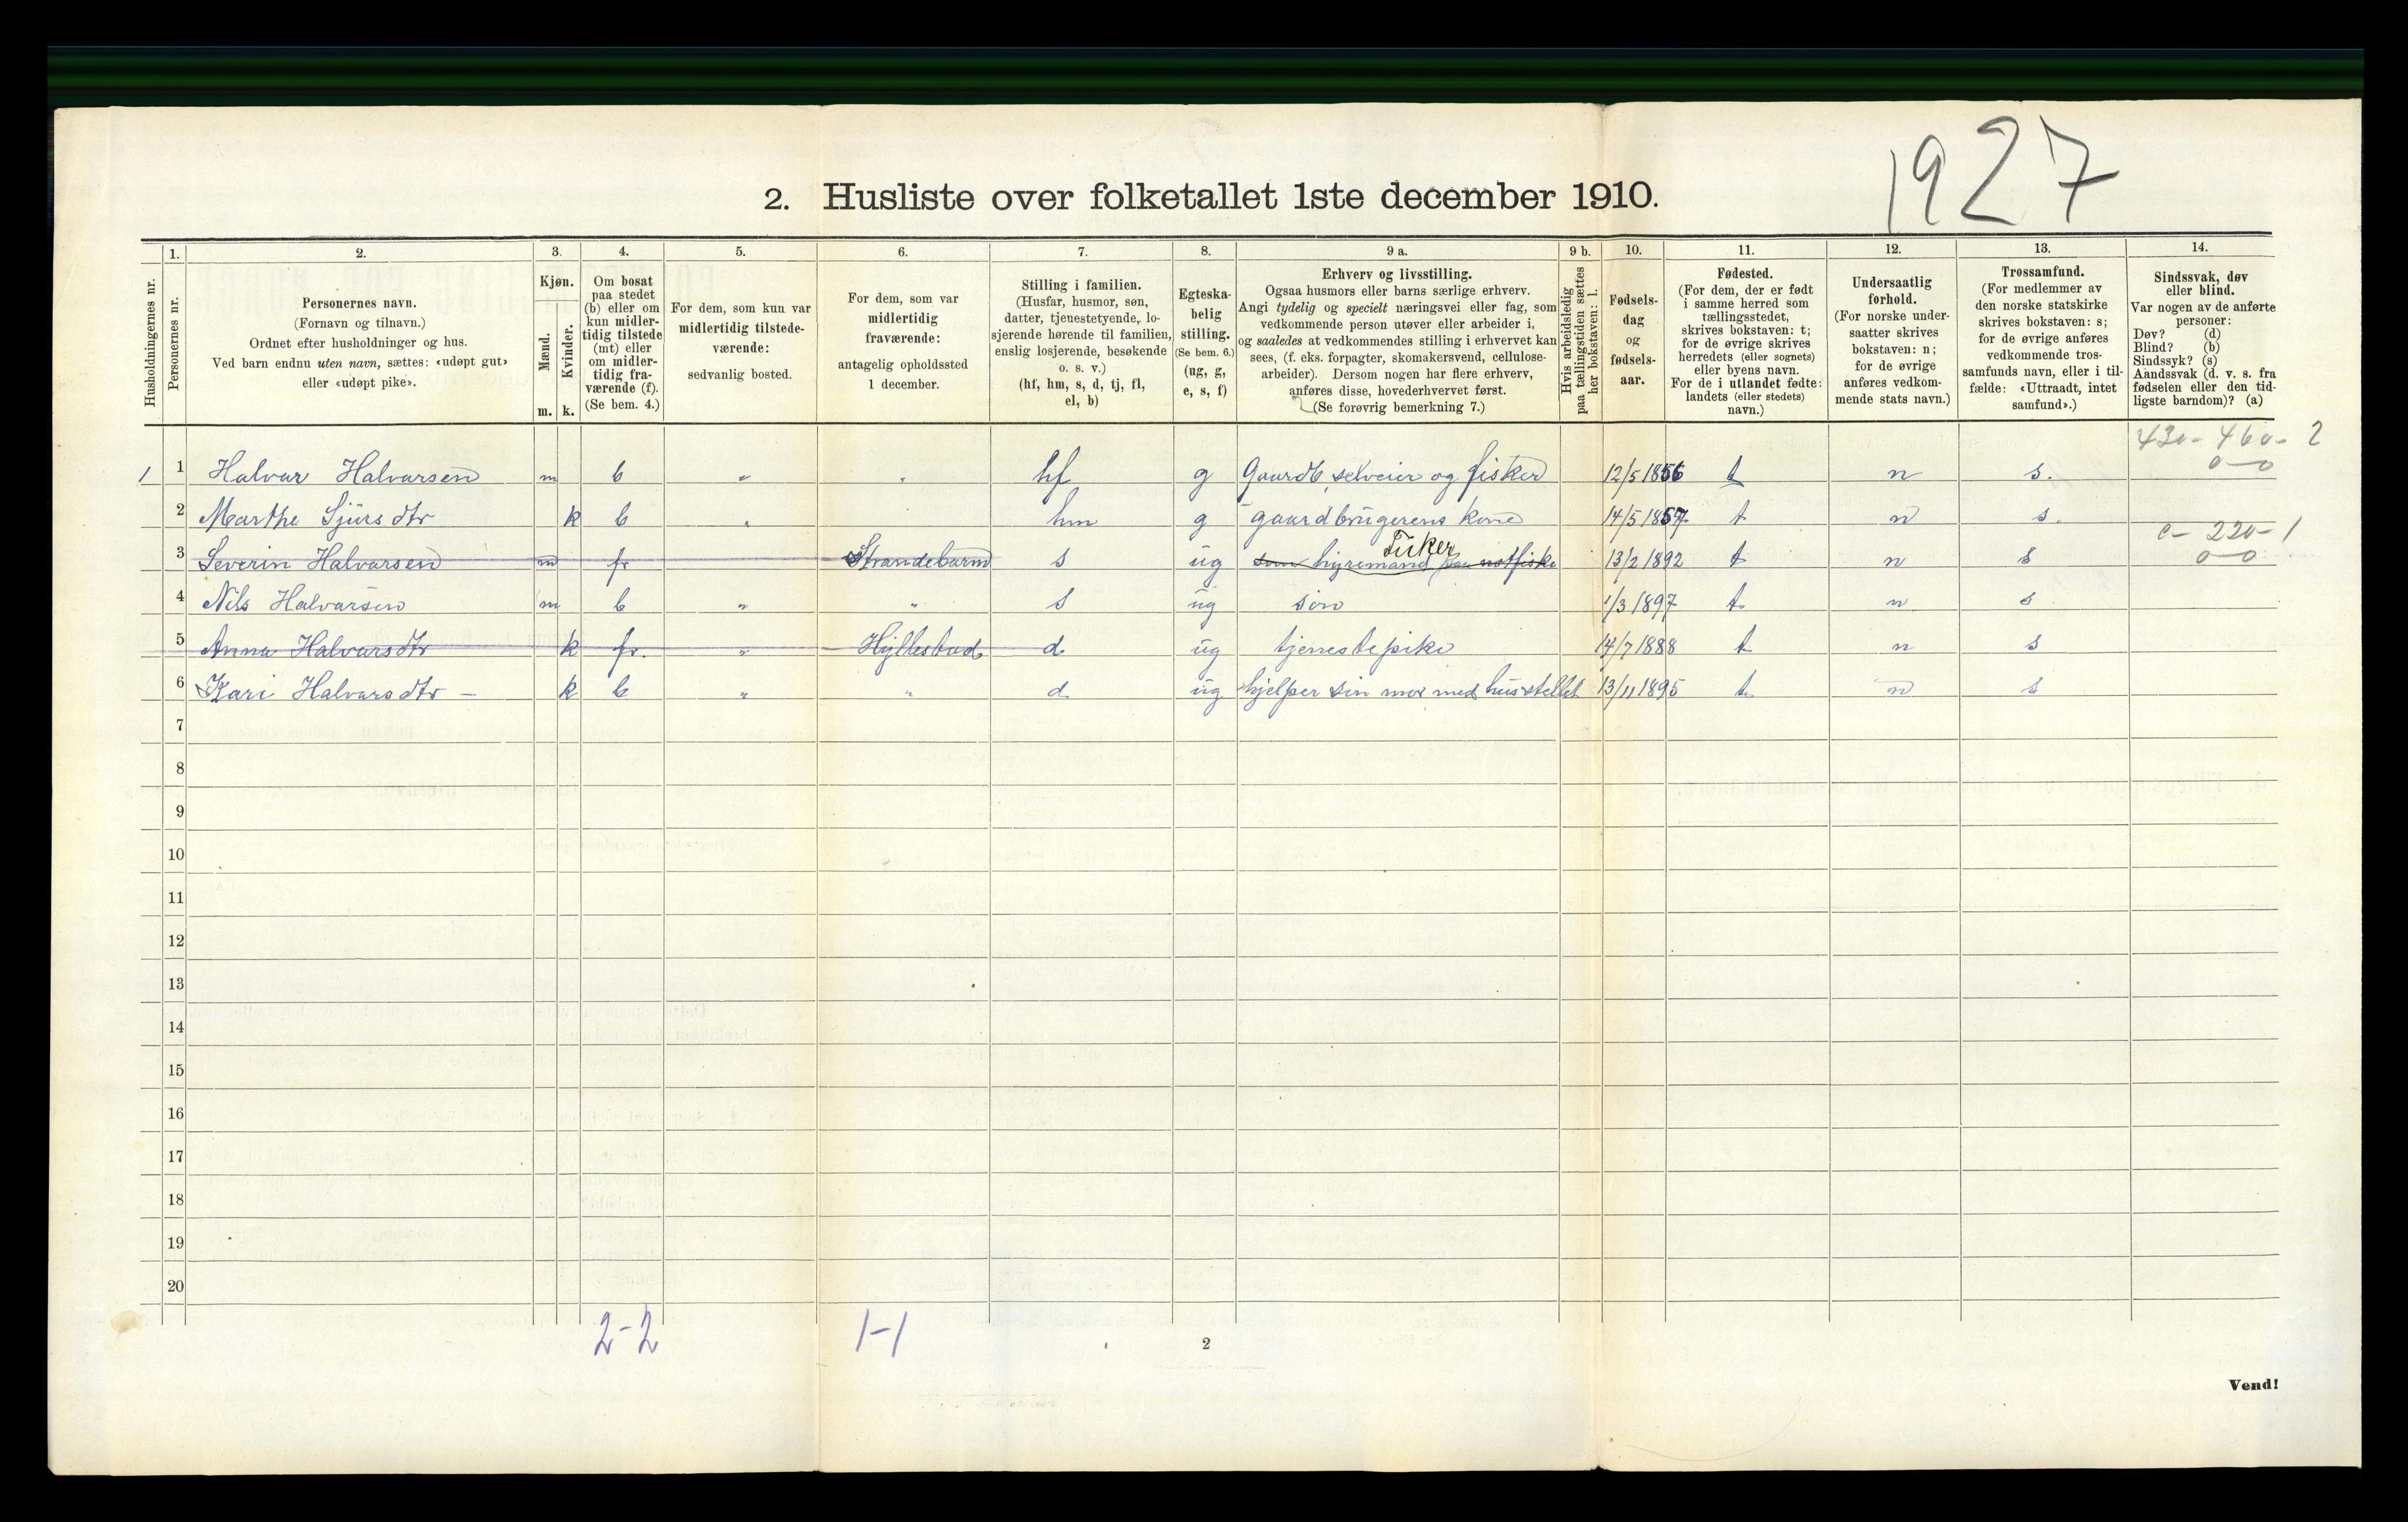 1927
2. Husliste over folketallet 1ste december 1910.
Husholdningernes nr.
1. Personernes nr.
2. Personernes navn.
(Fornavn og tilnavn.)
Ordnet efter husholdninger og hus.
Ved barn endnu uten navn, sættes: «udøpt gut»
eller «udøpt pike».
3. Kjøn.
Mænd. m.
Kvinder. k.
4. Om bosat
paa stedet
(b) eller om
kun midler-
tidig tilstede
(mt) eller
om midler-
tidig fra-
værende (f).
(Se bem. 4.)
5. For dem, som kun var
midlertidig tilstede-
værende:
sedvanlig bosted.
6. For dem, som var
midlertidig
fraværende:
antagelig opholdssted
1 december.
7. Stilling i familien.
(Husfar, husmor, søn,
datter, tjenestetyende, lo-
sjerende hørende til familien,
enslig losjerende, besøkende
o. s. v.)
(hf, hm, s, d, tj, fl,
el, b)
8. Egteska-
belig
stilling.
(Se bem. 6.)
(ug, g,
e, s, f)
9 a. Erhverv og livsstilling.
Ogsaa husmors eller barns særlige erhverv.
Angi tydelig og specielt næringsvei eller fag, som
vedkommende person utøver eller arbeider i,
og saaledes at vedkommendes stilling i erhvervet kan
sees, (f. eks. forpagter, skomakersvend, cellulose-
arbeider). Dersom nogen har flere erhverv,
anføres disse, hovederhvervet først.
(Se forøvrig bemerkning 7.)
9 b. Hvis arbeidsledig
paa tællingstiden sættes
her bokstaven: l.
10. Fødsels-
dag
og
fødsels-
aar.
11. Fødested.
(For dem, der er født
i samme herred som
tællingsstedet,
skrives bokstaven: t;
for de øvrige skrives
herredets (eller sognets)
eller byens navn.
For de i utlandet fødte:
landets (eller stedets)
navn.)
12. Undersaatlig
forhold.
(For norske under-
saatter skrives
bokstaven: n;
for de øvrige
anføres vedkom-
mende stats navn.)
13. Trossamfund.
(For medlemmer av
den norske statskirke
skrives bokstaven: s;
for de øvrige anføres
vedkommende tros-
samfunds navn, eller i til-
fælde: «Uttraadt, intet
samfund».)
14. Sindssvak, døv
eller blind.
Var nogen av de anførte
personer:
Døv? (d)
Blind? (b)
Sindssyk? (s)
Aandssvak (d. v. s. fra
fødselen eller den tid-
ligste barndom)? (a)
430-460-2
1 1 Halvar Halvarsen m b " " hf g Gaardb. selveier og fisker 12/5 1856 t n s. 0-0
2 Marthe Sjursdtr k b " hm g gaardbrugerens kone 14/5 1857 t n s.
c-220-1
Fisker
3 Severin Halvarsen m fr Strandebarm s ug som hyremand paa notfiske 13/2 1892 t n s 0-0
4 Nils Halvarsen m b " " s ug søn 1/3 1897 t n s
5 Anna Halvarsdtr k fr. " Hyllestad d ug tjenestepike 14/7 1888 t n s
6 Kari Halvarsdtr - k b " " d ug hjelper sin mor med husstellet 13/11 1895 t n s
7
8
9
10
11
12
13
14
15
16
17
18
19
20
2-2 1-1
2
Vend!